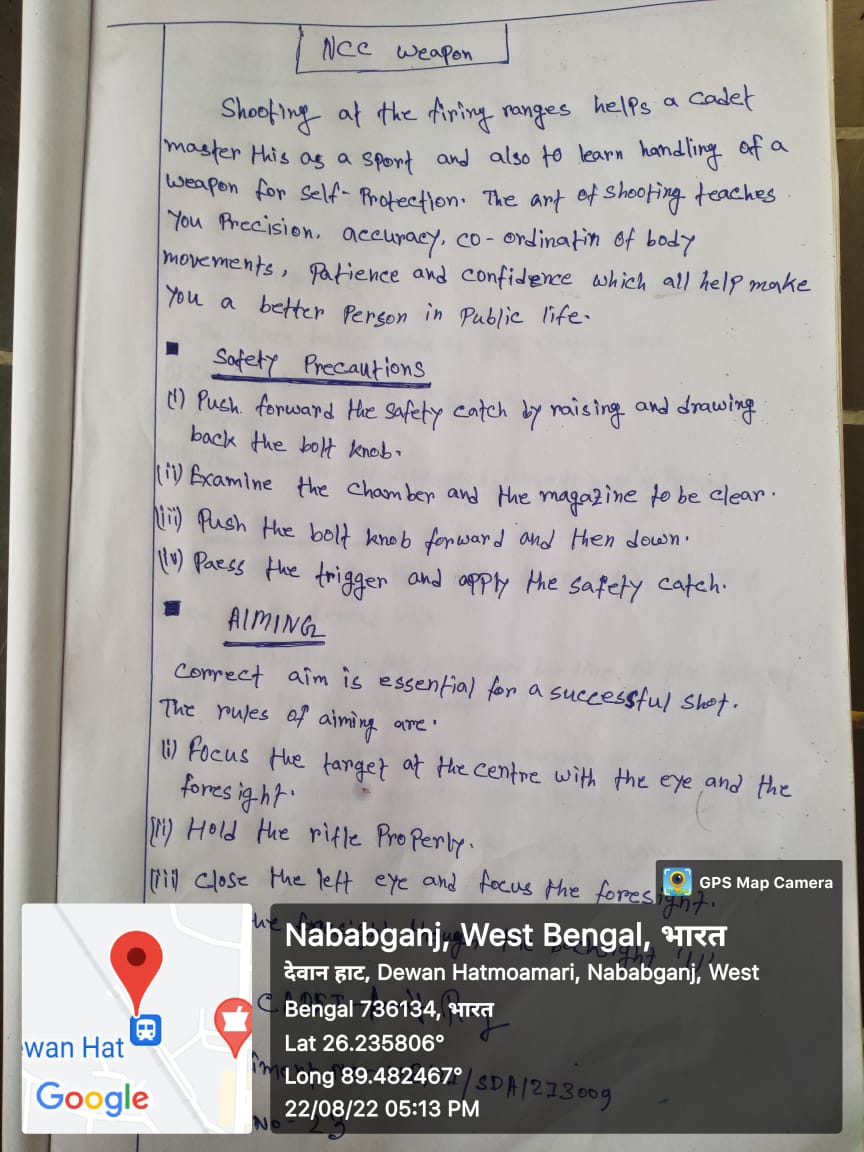 NCC Weapon
Shooting at the firing ranges helps a cadet
master this as a sport and also to learn handling of a
weapon for self-Protection. The art of shooting teaches
You Precision, accuracy, co-ordinatin of body
movements, Patience and confidence which all help make
You a better Person in Public life.
Safety Precautions
(i) Push forward the safety catch by raising and drawing
back the bolt knob.
(ii) Examine the chamber and the magazine to be clear.
(iii) Push the bolt knob forward and then down.
(iv) Paess the trigger and apply the safety catch.
AIMING
Correct aim is essential for a successful shot.
The rules of aiming are.
(i) Focus the target at the centre with the eye and the
foresight.
(ii) Hold the rifle Properly.
(iii) Close the left eye and focus the foresight.
GPS Map Camera
Nababganj, West Bengal, भारत
देवान हाट, Dewan Hatmoamari, Nababganj, West
Bengal 736134, भारत
Lat 26.235806°
Long 89.482467°
22/08/22 05:13 PM
wan Hat
Google
/SDA/273009
No - 23